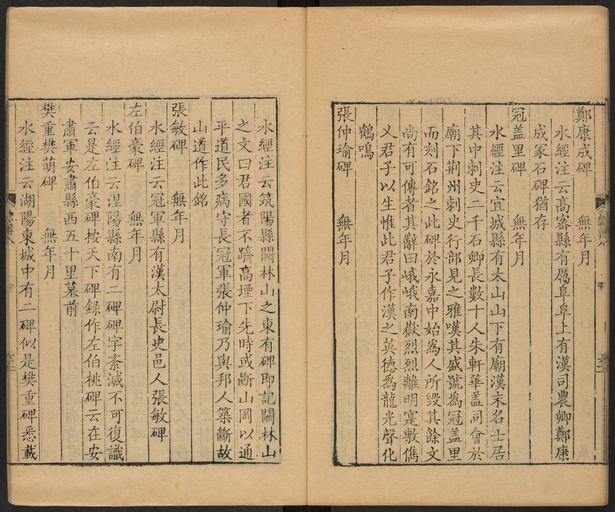 鄭康成碑　　無年月
水經注云高密縣有厲阜阜上有漢司農卿鄭康
成冢石碑猶存
冠盖里碑　　無年月
水經注云宜城縣有太山山下有廟漢末名士居
其中刺史二千石卿長數十人朱軒華盖同會於
廟下荆州刺史行部見之雅嘆其盛號為冠盖里
而刻石銘之此碑於永嘉中始為人所毀其餘文
尚有可傳者其辭曰峨峨南嶽烈烈離明寔敷儁
乂君子以生惟此君子作漢之英德為龍光聲化
鶴鳴
張仲瑜碑　　無年月
水經注云筑陽縣闗林山之東有碑即記闗林山
之文曰君國者不躋高堙下先時或斷山岡以通
平道民多病守長冠軍張仲瑜乃與邦人築斷故
山道作此銘
張敏碑　　無年月
水經注云冠軍縣有漢太尉長史邑人張敏碑
左伯豪碑　　無年月
水經注云涅陽縣南有二碑碑字紊滅不可復識
云是左伯豪碑按天下碑録作左伯桃碑云在安
肅軍安肅縣西五十里墓前
樊重樊萌碑　　無年月
水經注云湖陽東城中有二碑似是樊重碑悉載